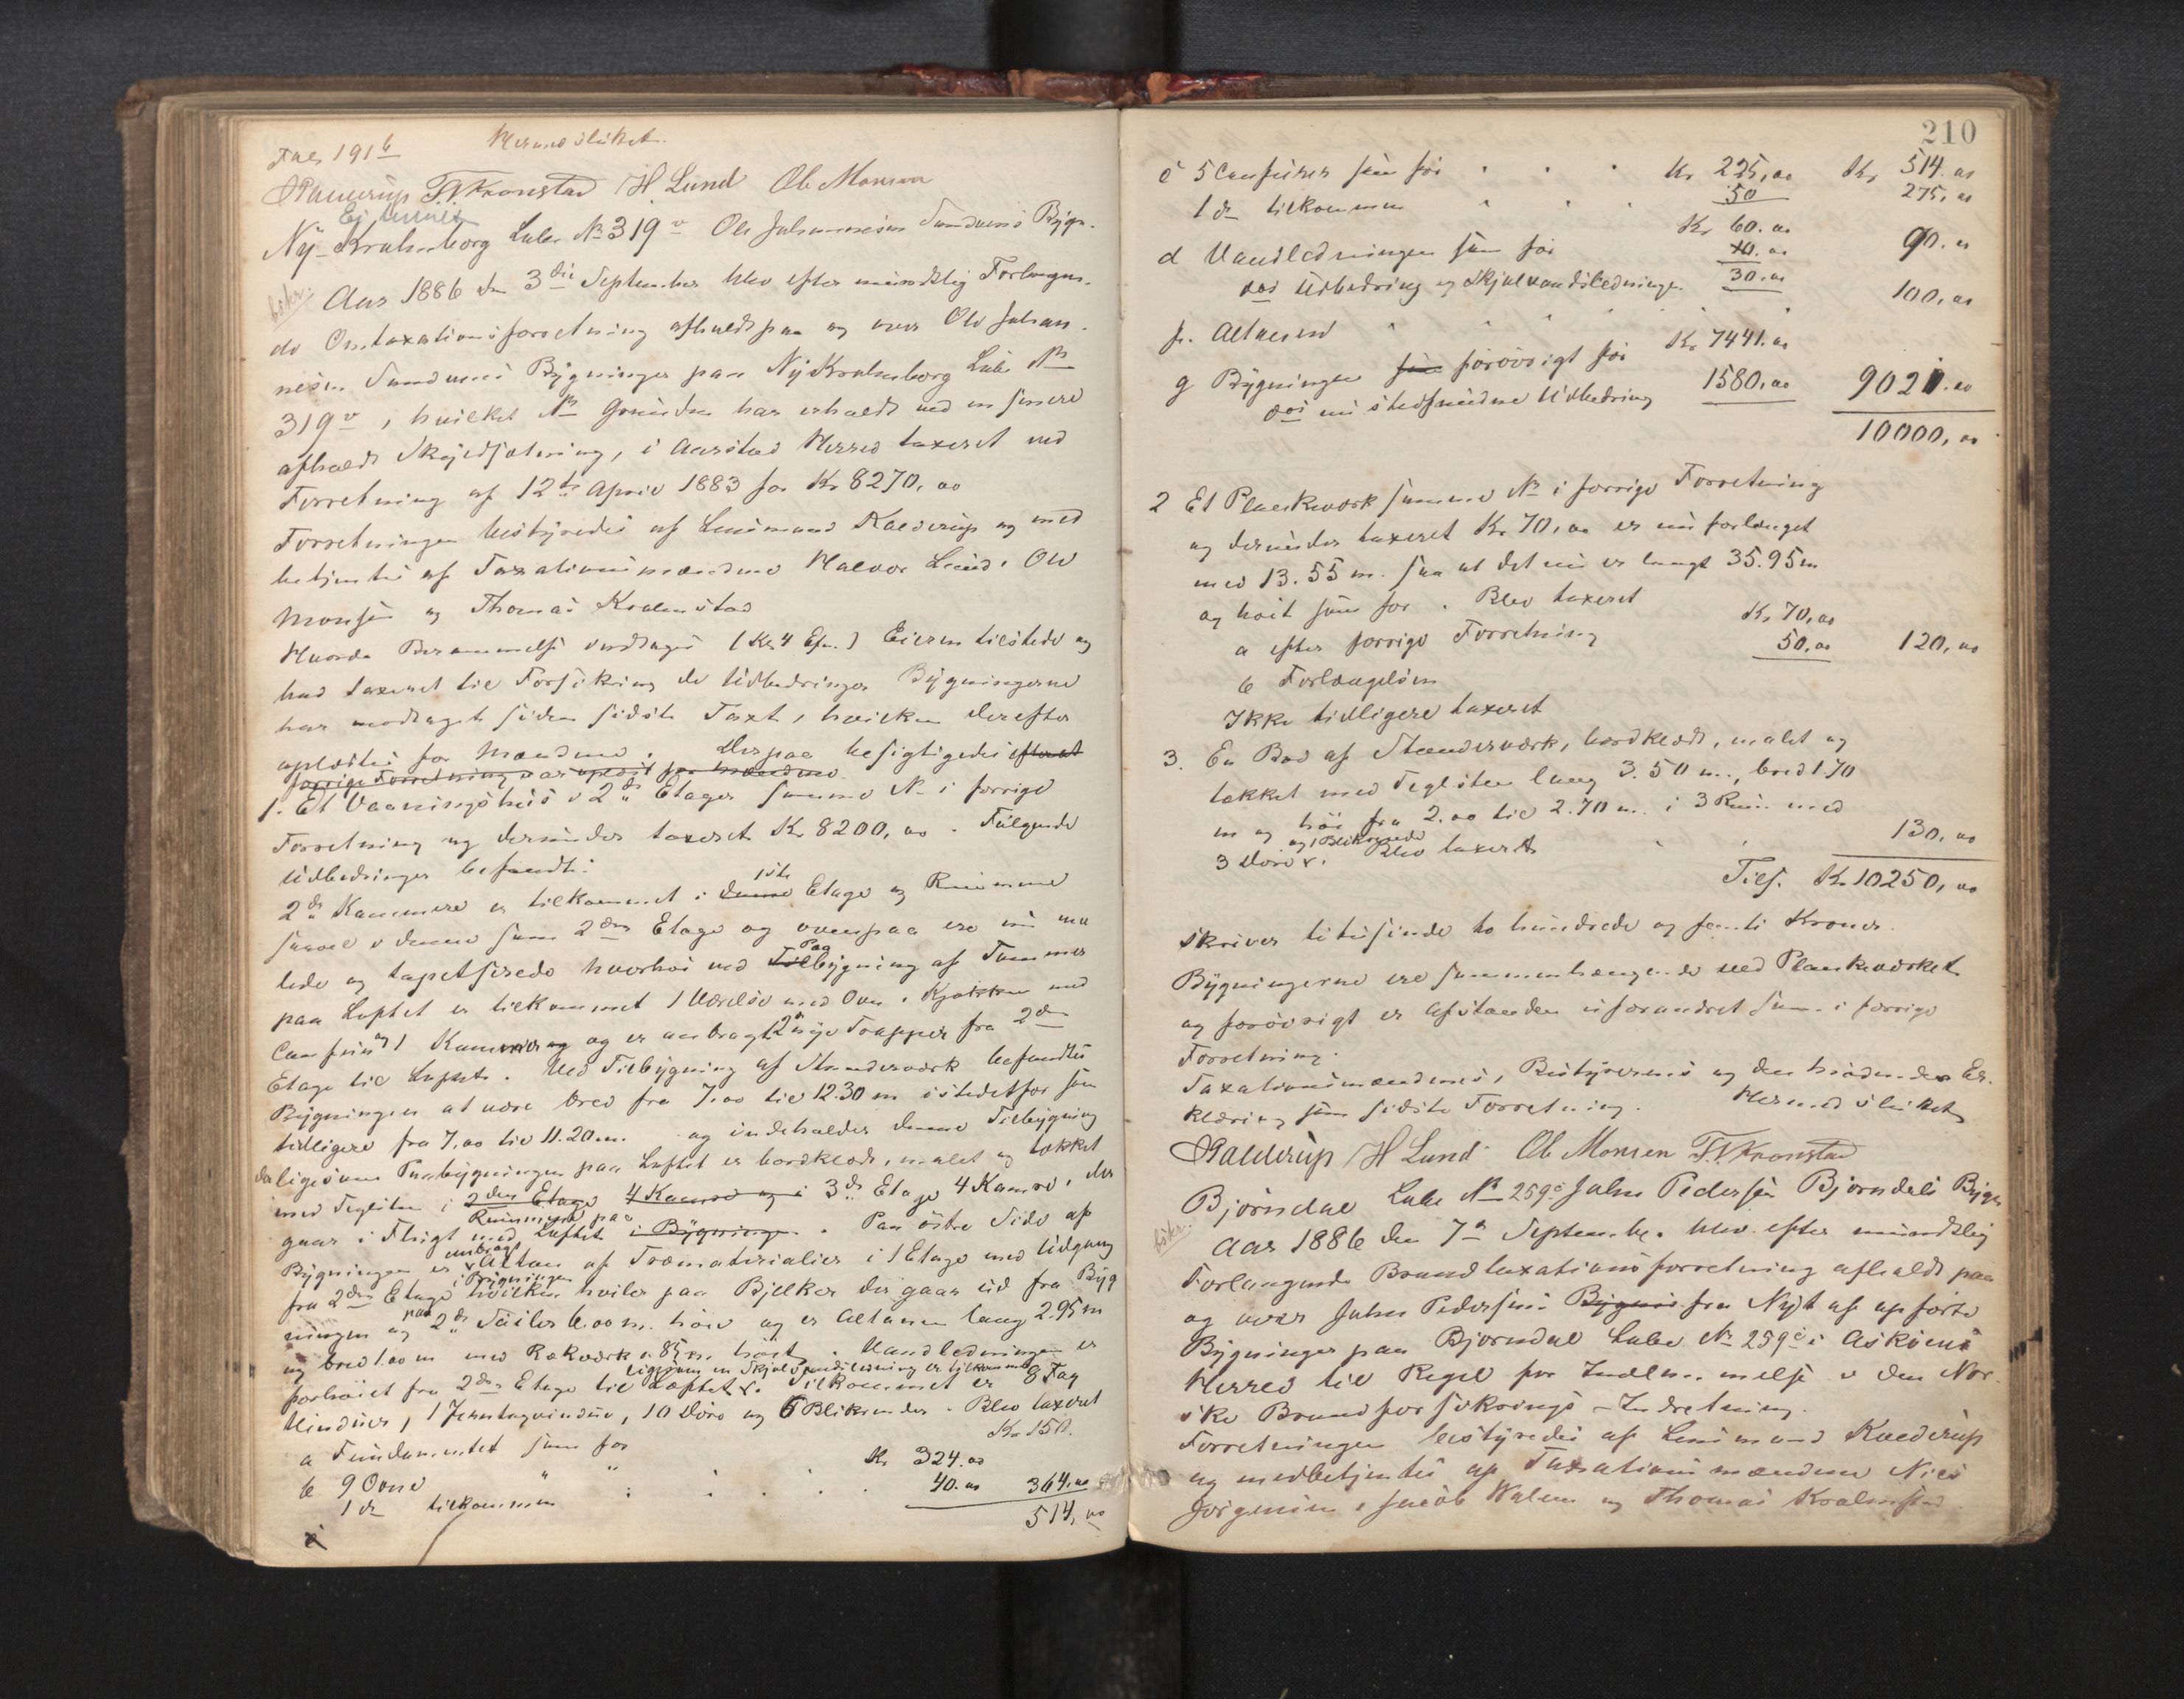 Fals 191 6
Hermed sluttet.
Kalderup T. Kronstad H Lund Ole Monsen
Ny-Krohnborg Løbe № 319 v Ole Johannesen Sundnes Bygn.
bokr.
Aar 1886 den 3die September blev efter mundtlig Forlangen-
de Omtaxationsforretning afholdt paa og over Ole Johan-
nesen Sundnes Bygninger paa Ny Krohnborg Løbe №
319 v, hvilket № Grunden har erholdt ved en senere
afholdt Skyldsætning, i Aarstad Herred taxeret ved
Forretning af 12te April 1883 for Kr 8270,00
Forretningen bestyredes af Lensmand Kalderup og med
betjentes af Taxationsmændene Halvor Lund, Ole
Monsen og Thomas Kronstad
Hvorda Berammelse vedtages (Kl 4 Efm.) Eieren tilstede og
bad taxeret til Forsikring de Udbedringer Bygningerne
har modtaget siden sidste Taxt, hvilken derefter
oplæstes for Mændene. Derpaa besigtigedes efterat
forrige Forretning var oplæst for Mændene
1. Et Vaaningshus i 2de Etager samme № i forrige
Forretning og derunder taxeret Kr 8200,00. Følgende
Udbedringer befandtes:
2de Kammere er tilkommet i denne 1ste Etage og Rummene
saavel i denne som 2den Etage og ovenpaa ere nu ma
lede og tapetserede hvorhos ved Til Paabygning af Tømmer
paa Loftet er tilkommet 1 Værelse med Ovn, Kjøkken med
Comfur og 1 Kammer og og er anbragt 2de nye Trapper fra 2den
Etage til Loftet. Ved Tilbygning af Stænderværk befandtes
Bygningen at være bred fra 7.00 til 12.30 m istedetfor som
tidligere fra 7.00 til 11.20 m. og indeholder denne Tilbygning
der ligesom Paabygningen paa Loftet er bordklædt, malet og tækket
med Teglsten i 2den Etage 4 Kamre og i 3de Etage 4 Kamre, der
gaar i Flugt med Rummene paa Loftet i Bygningen. Paa østre Side af
Bygningen er anbragt Altan af Træmaterialier i 1 Etage med Udgang
fra 2den Etage i Bygningen hvilken hviler paa Bjelker der gaar ud fra Byg
ningen og paa 2de Søiler 6.00 m. høie og er Altanen lang 2.95 m
og bred 1.00 m med Rækværk 0.85 m. høit. Vandledningen er
forhøiet fra 2den Etage til Loftet ligesom en Skjolevandsledning er tilkommet. Tilkommet er 8 Fag
Vinduer, 1 Jerntagvindue, 10 Døre og 6 Blikrender. Blev taxeret
a Fundamentet som før Kr 150.
b 9 Ovne " " Kr 324.00
1 do tilkommen 40.00 364.00
514,00
210
c 5 Comfurer som før Kr 225,00 Kr 514.00
1 do tilkommen 50 275,00
d Vandledningen som før Kr 60.00
ved Udbedring og Skjolevandsledningen 30.00 90.00
f. Altanen 100,00
g Bygningen som forøvrigt før Kr 7441.00
ved nu stedfundne Udbedring 1580,00 9021.00
10000,00
2 Et Plankeværk samme № i forrige Forretning
og derunder taxeret Kr 70,00 er nu forlænget
med 13.55 m. saa at det nu er langt 35.95 m
og høit som før. Blev taxeret
a efter forrige Forretning Kr 70,00
b Forlængelsen 50,00 120,00
Ikke tidligere taxeret
3. En Bod af Stænderværk, bordklædt, malet og
tækket med Teglsten lang 3.50 m., bred 1.70
m og høi fra 2.00 til 2.70 m. i 3 Rum med
3 Døre og 1 Blikrende. Blev taxeret 130,00
Tils. Kr 10250,00
skriver titusinde to hundrede og femti Kroner.
Bygningerne ere sammenhængende ved Plankeværket
og forøvrigt er Afstanden uforandret som i forrige
Forretning.
Taxationsmændenes, Bestyrerens og den Er-
klæring som sidste Forretning. Hermed sluttet
Kalderup H Lund Ole Monsen T. Kronstad
Bjørndal Løbe № 259 c Johs Pedersen Bjørndals Bygn
bokr.
Aar 1886 den 7de Septembr. blev efter mundtlig
Forlangende Brandtaxationsforretning afholdt paa
og over Johs Pedersens Bygnin fra Nyt af opførte
Bygninger paa Bjørndal Løbe № 259 c i Askøens
Herred til Regel for Indlemmelse i den Nor-
ske Brandforsikrings-Indretning.
Forretningen bestyredes af Lensmand Kalderup
og medbetjentes af Taxationsmændene Nils
Jørgensen, Jacob Walen og Thomas Kronstad